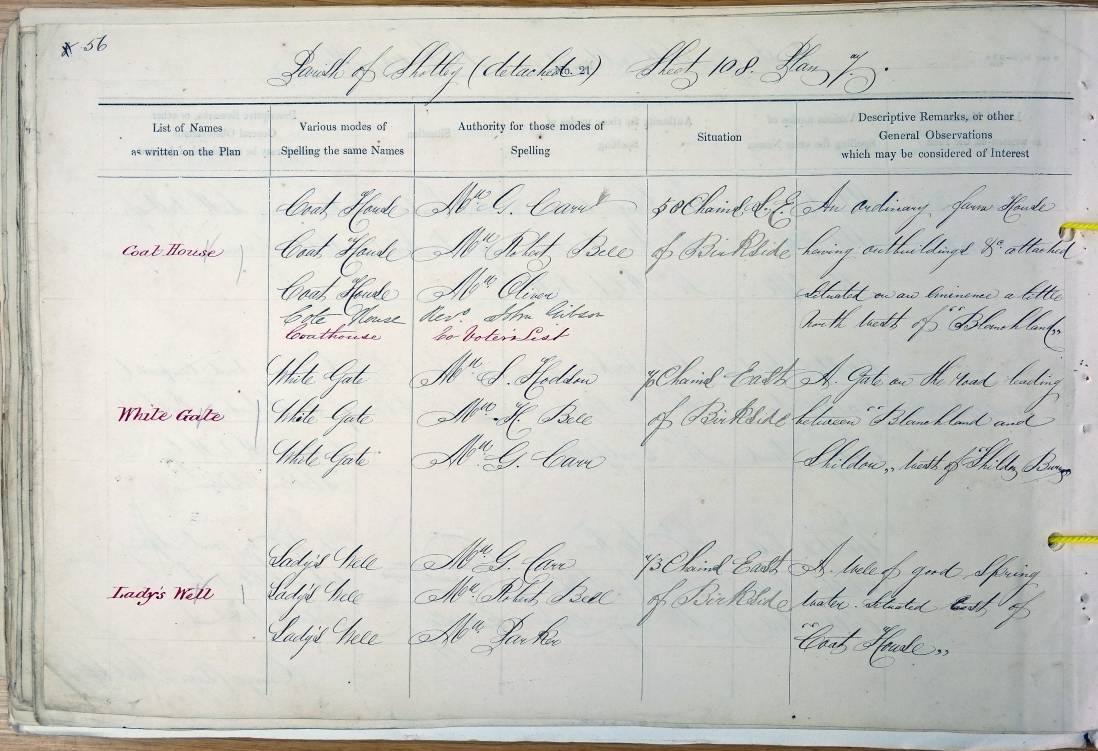 56
Parish of Shotley (detached No. 21) Sheet 108. Plan 7.
List of Names
as written on the Plan
Various modes of
Spelling the same Names
Authority for those modes of
Spelling
Situation
Descriptive Remarks, or other
General Observations
which may be considered of Interest
Coat House
Coat House
Coat House
Coat House
Cote House
Coathouse
Mr. G. Carr
Mr. Robert Bell
Mr. Oliver
Revd. John Gibson
Co Voter's List
58 Chains S.E.
of Birkside
An ordinary farm House
having outbuildings &c. attached
situated on an eminence a little
North West of "Blanchland"
White Gate
White Gate
White Gate
White Gate
Mr. S. Hoddon
Mr. H. Bell
Mr. G. Carr
Chains East
of Birkside
A Gate on the road leading
between "Blanchland and
Shildon" West of "Shildon Burn"
Lady's Well
Lady's Well
Lady's Well
Lady's Well
Mr. G. Carr
Mr. Robert Bell
Mr. Parker
73 Chains East
of Birkside
A well of good Spring
water situated East of
"Coat House"